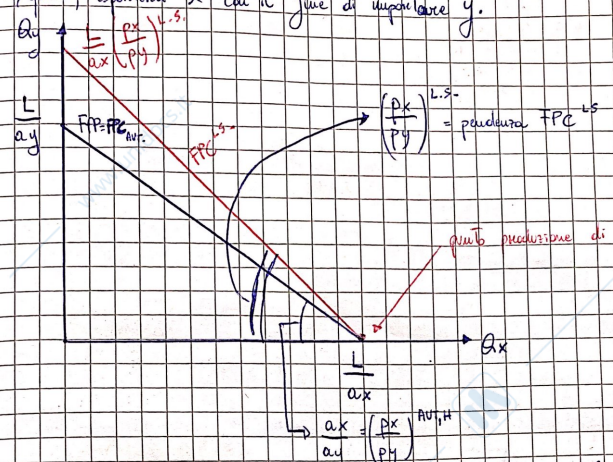 esportare x con il fine di importare y.
Qy
L/ax (px/py)^L.S.
L/ay
FPP=FPC AUT.
FPC L.S.
(px/py)^L.S. = pendenza FPC^LS
punto produzione di
Qx
L/ax
ax/ay = (px/py)^AUT,H